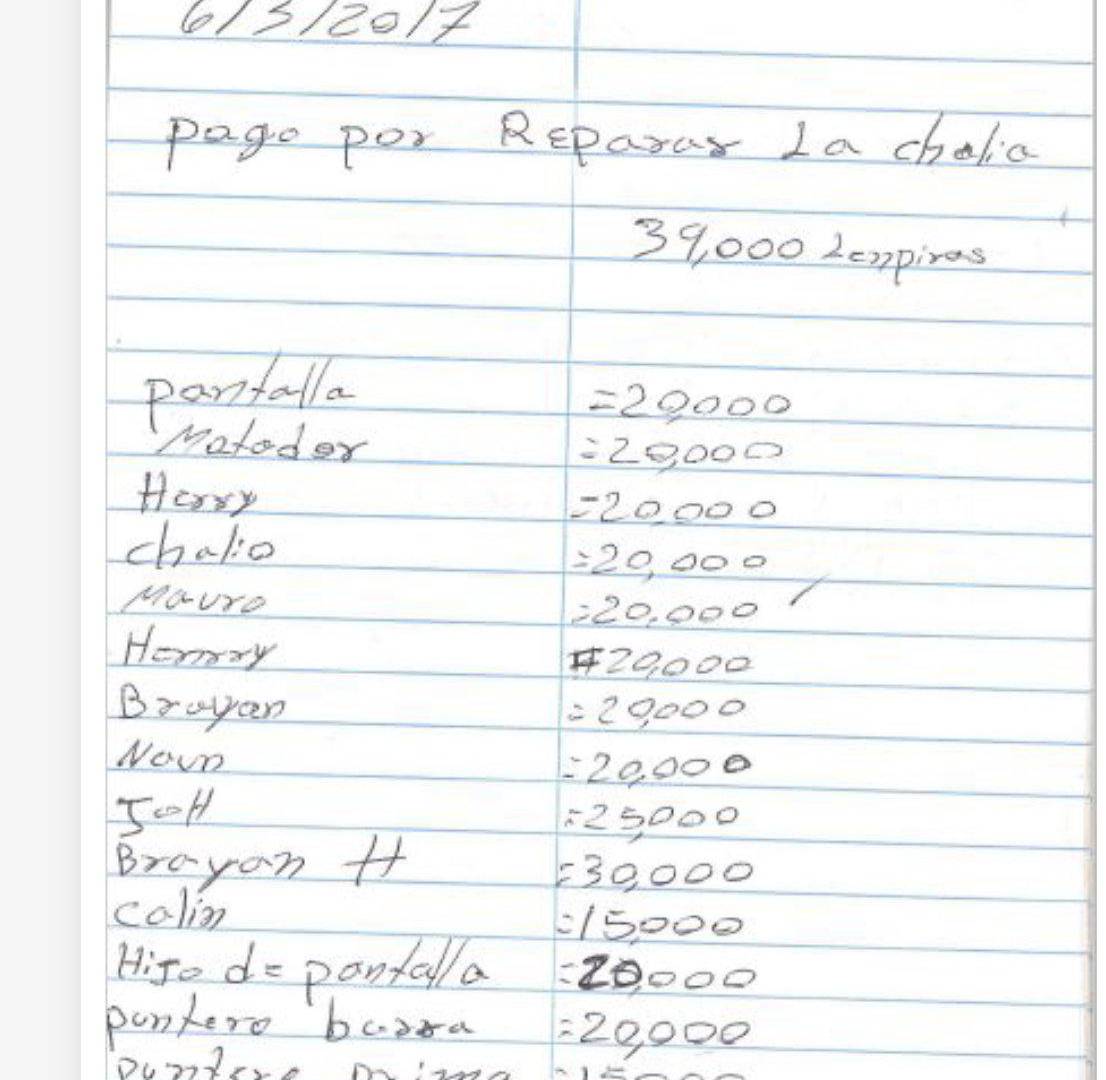 6/3/2017
pago por Reparar La chalia
39,000 Lempiras
pantalla =20,000
Matador =20,000
Herry =20,000
chalio =20,000
Mauro =20,000
Henrry =20,000
Brayan =20,000
Noun =20,000
JoH =25,000
Brayan H =30,000
Calin =15,000
HiJo de pantalla =20,000
puntero barra =20,000
puntero prima =15,000